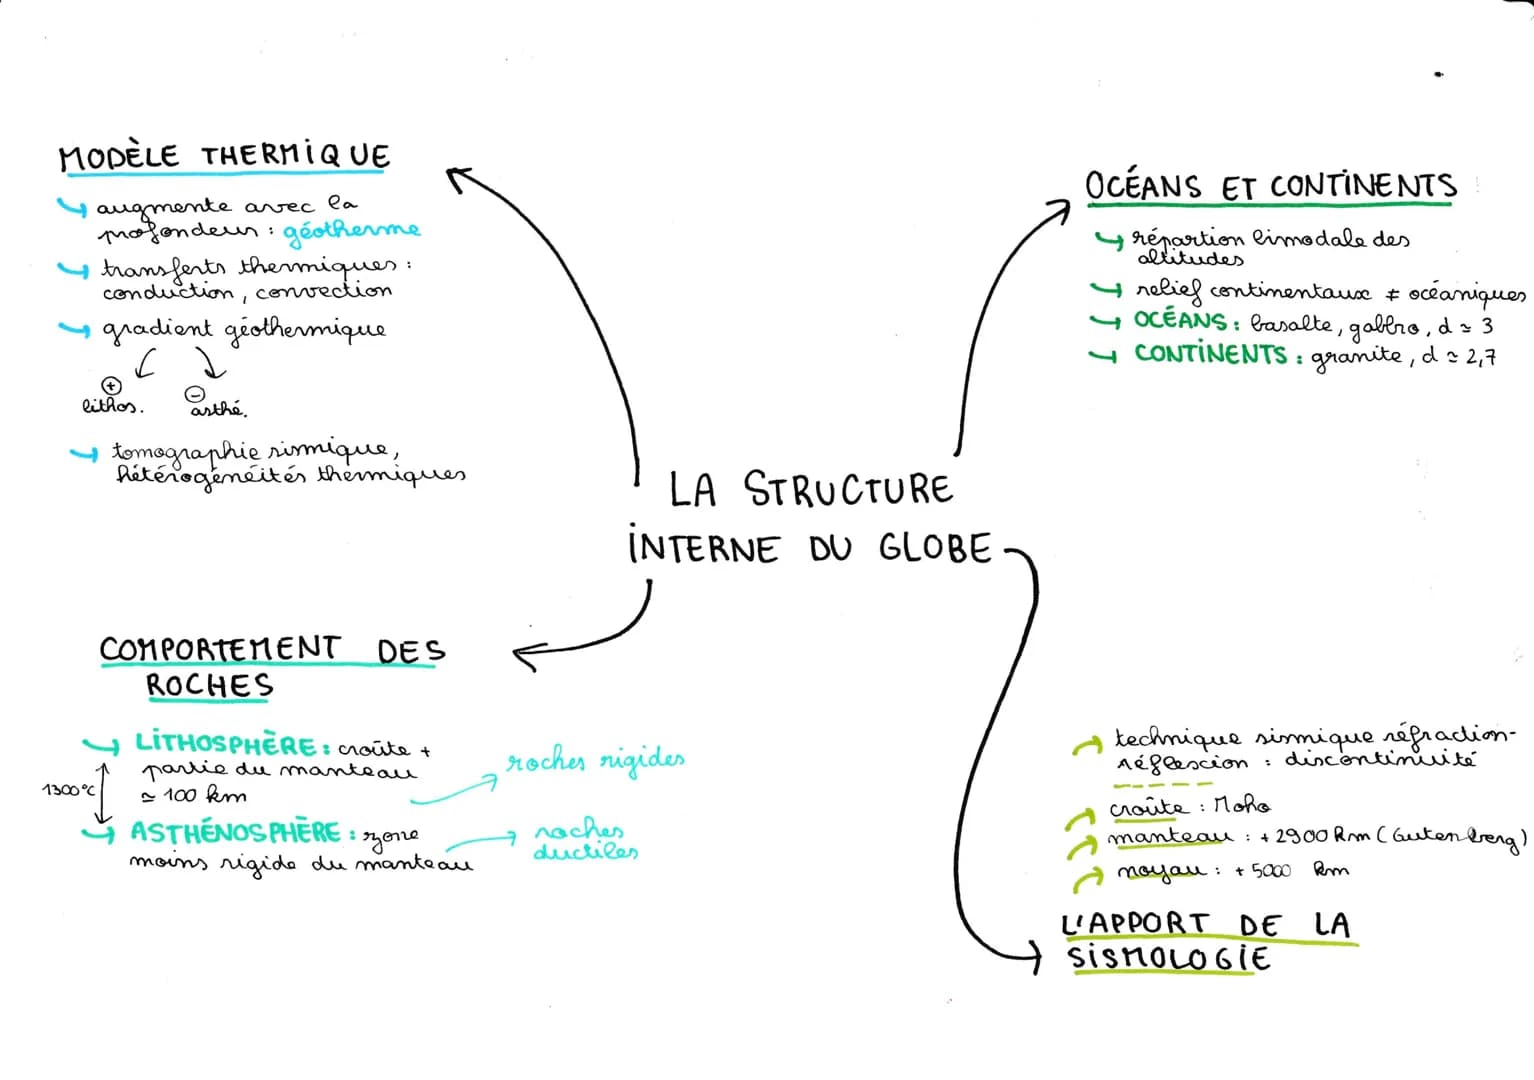 LA STRUCTURE
INTERNE DU GLOBE
MODÈLE THERMIQUE
augmente avec la
profondeur : géotherme
transferts thermiques :
conduction, convection
gradient géothermique
+ -
lithos. asthé.
tomographie sismique,
hétérogénéités thermiques
OCÉANS ET CONTINENTS
répartion bimodale des
altitudes
relief continentaux ≠ océaniques
OCÉANS : basalte, gabbro, d ≃ 3
CONTINENTS : granite, d ≃ 2,7
COMPORTEMENT DES
ROCHES
LITHOSPHÈRE : croûte +
partie du manteau
≃ 100 km
roches rigides
1300°C
ASTHÉNOSPHÈRE : zone
moins rigide du manteau
roches
ductiles
technique sismique réfraction-
réflexcion : discontinuité
croûte : Moho
manteau : + 2900 km (Gutenberg)
noyau : + 5000 km
L'APPORT DE LA
SISMOLOGIE